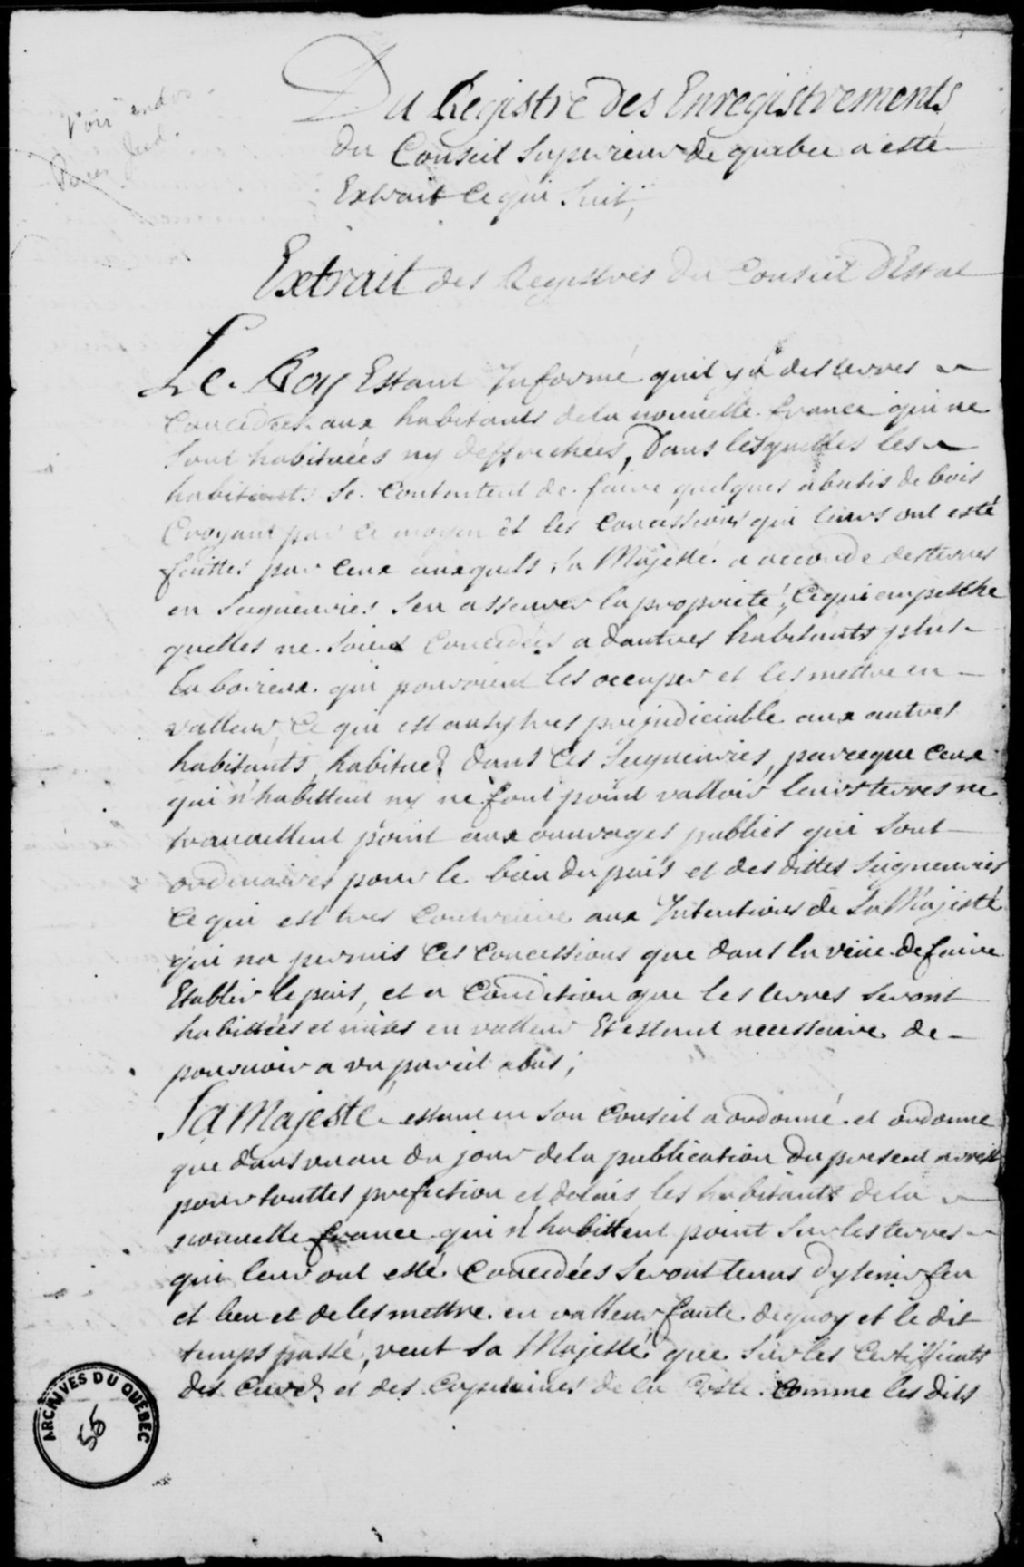 Voir endos
Du Registre des Enregistrements
du Conseil Superieur de quebec a esté
Extrait ce qui suit,
Extrait des Registres du Conseil d'Estat
Le Roy Estant Informé quil y a des terres
Concedées aux habitants dela nouvelle france qui ne
sont habituées ny deffrichées, Dans lesquelles les
habitants se contentent de faire quelques abatis de bois
Croyant par ce moyen et les Concessions qui leurs ont esté
faittes par ceux auxquels sa Majesté a accordé des terres
en Seigneuries s'en asseurer la proprieté, ce qui empesche
quelles ne soient Concedées a dautres habitants plus
laborieux qui pourroient les occuper et les mettre en
valleur, Ce qui est aussy tres préjudiciable aux autres
habitants habituez dans ces Seigneuries, parceque ceux
qui n'habittent ny ne font point valloir leurs terres ne
travaillent point aux ouvrages publics qui sont
ordonnés pour le bien du païs et des dittes Seigneuries
ce qui est tres contraire aux Intentions de Sa Majesté
qui na permis ces concessions que dans la veüe de faire
Etablir le païs, et a Condition que les terres seront
habittées et mises en valleur Et estant necessaire de
pourvoir a un pareil abus;
Sa Majesté estant en son Conseil a ordonné et ordonne
que dans un an du jour dela publication du present arrest
pour touttes prefiction et delais, les habitants dela
nouvelle france qui n'habittent point sur les terres
qui leur ont esté Concedées seront tenus dy tenir feu
et lieu et de les mettre en valleur faute dequoy et le dit
temps passé, veut sa Majesté que sur les Certifficats
des Curez et des Capitaines de la Coste comme les dits
ARCHIVES DU QUÉBEC